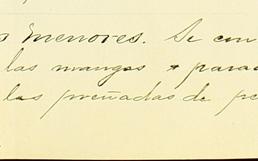 s menores. Se con
las mangas y para
las preñadas de pe